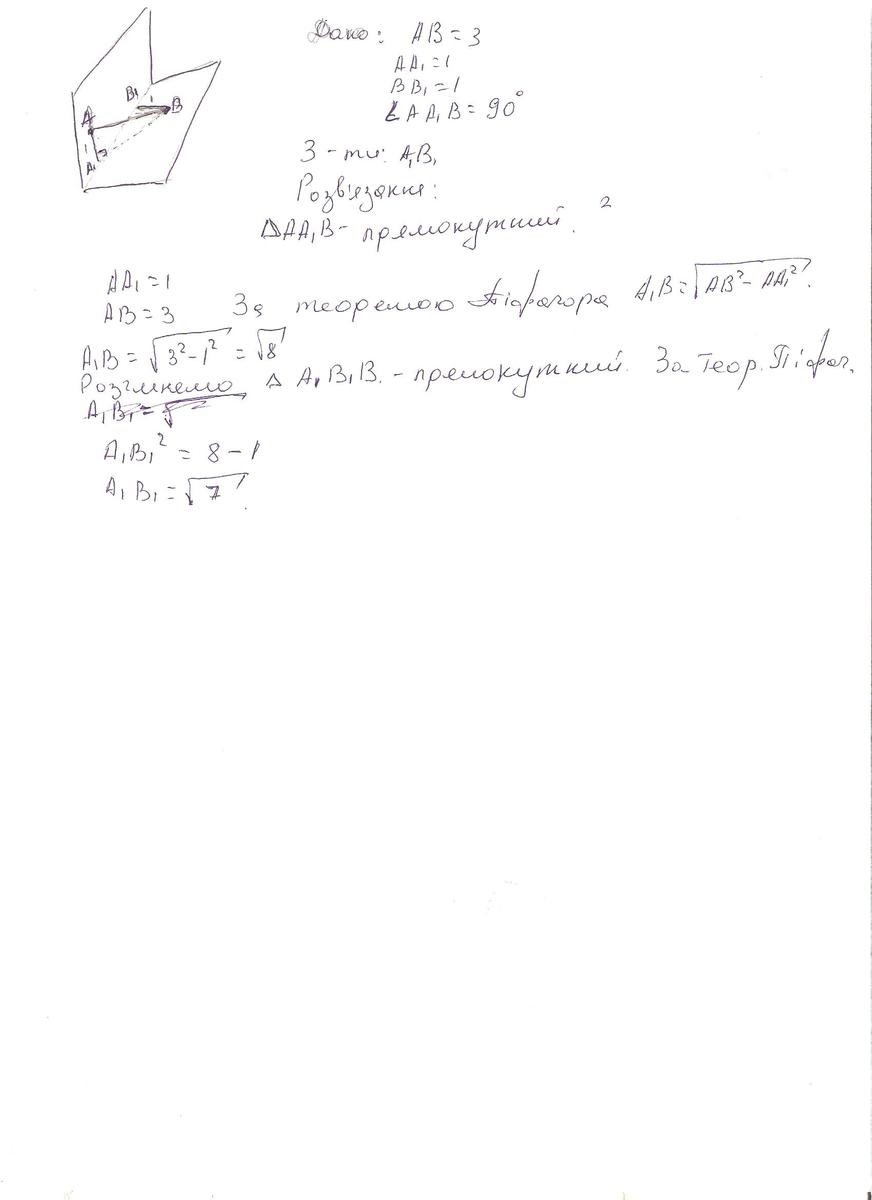 Дано: AB = 3
AA₁ = 1
BB₁ = 1
∠AA₁B = 90°
З-ти: A₁B₁
Розв'язання:
△AA₁B - прямокутний. 2
AA₁ = 1
AB = 3 За теоремою Піфагора A₁B = √(AB² - AA₁²).
A₁B = √(3² - 1²) = √8
Розглнемо △ A₁B₁B. - прямокутний. За Теор. Піфаг.
A₁B₁ =
A₁B₁² = 8 - 1
A₁B₁ = √7.
B₁
1
B
A
1
A₁